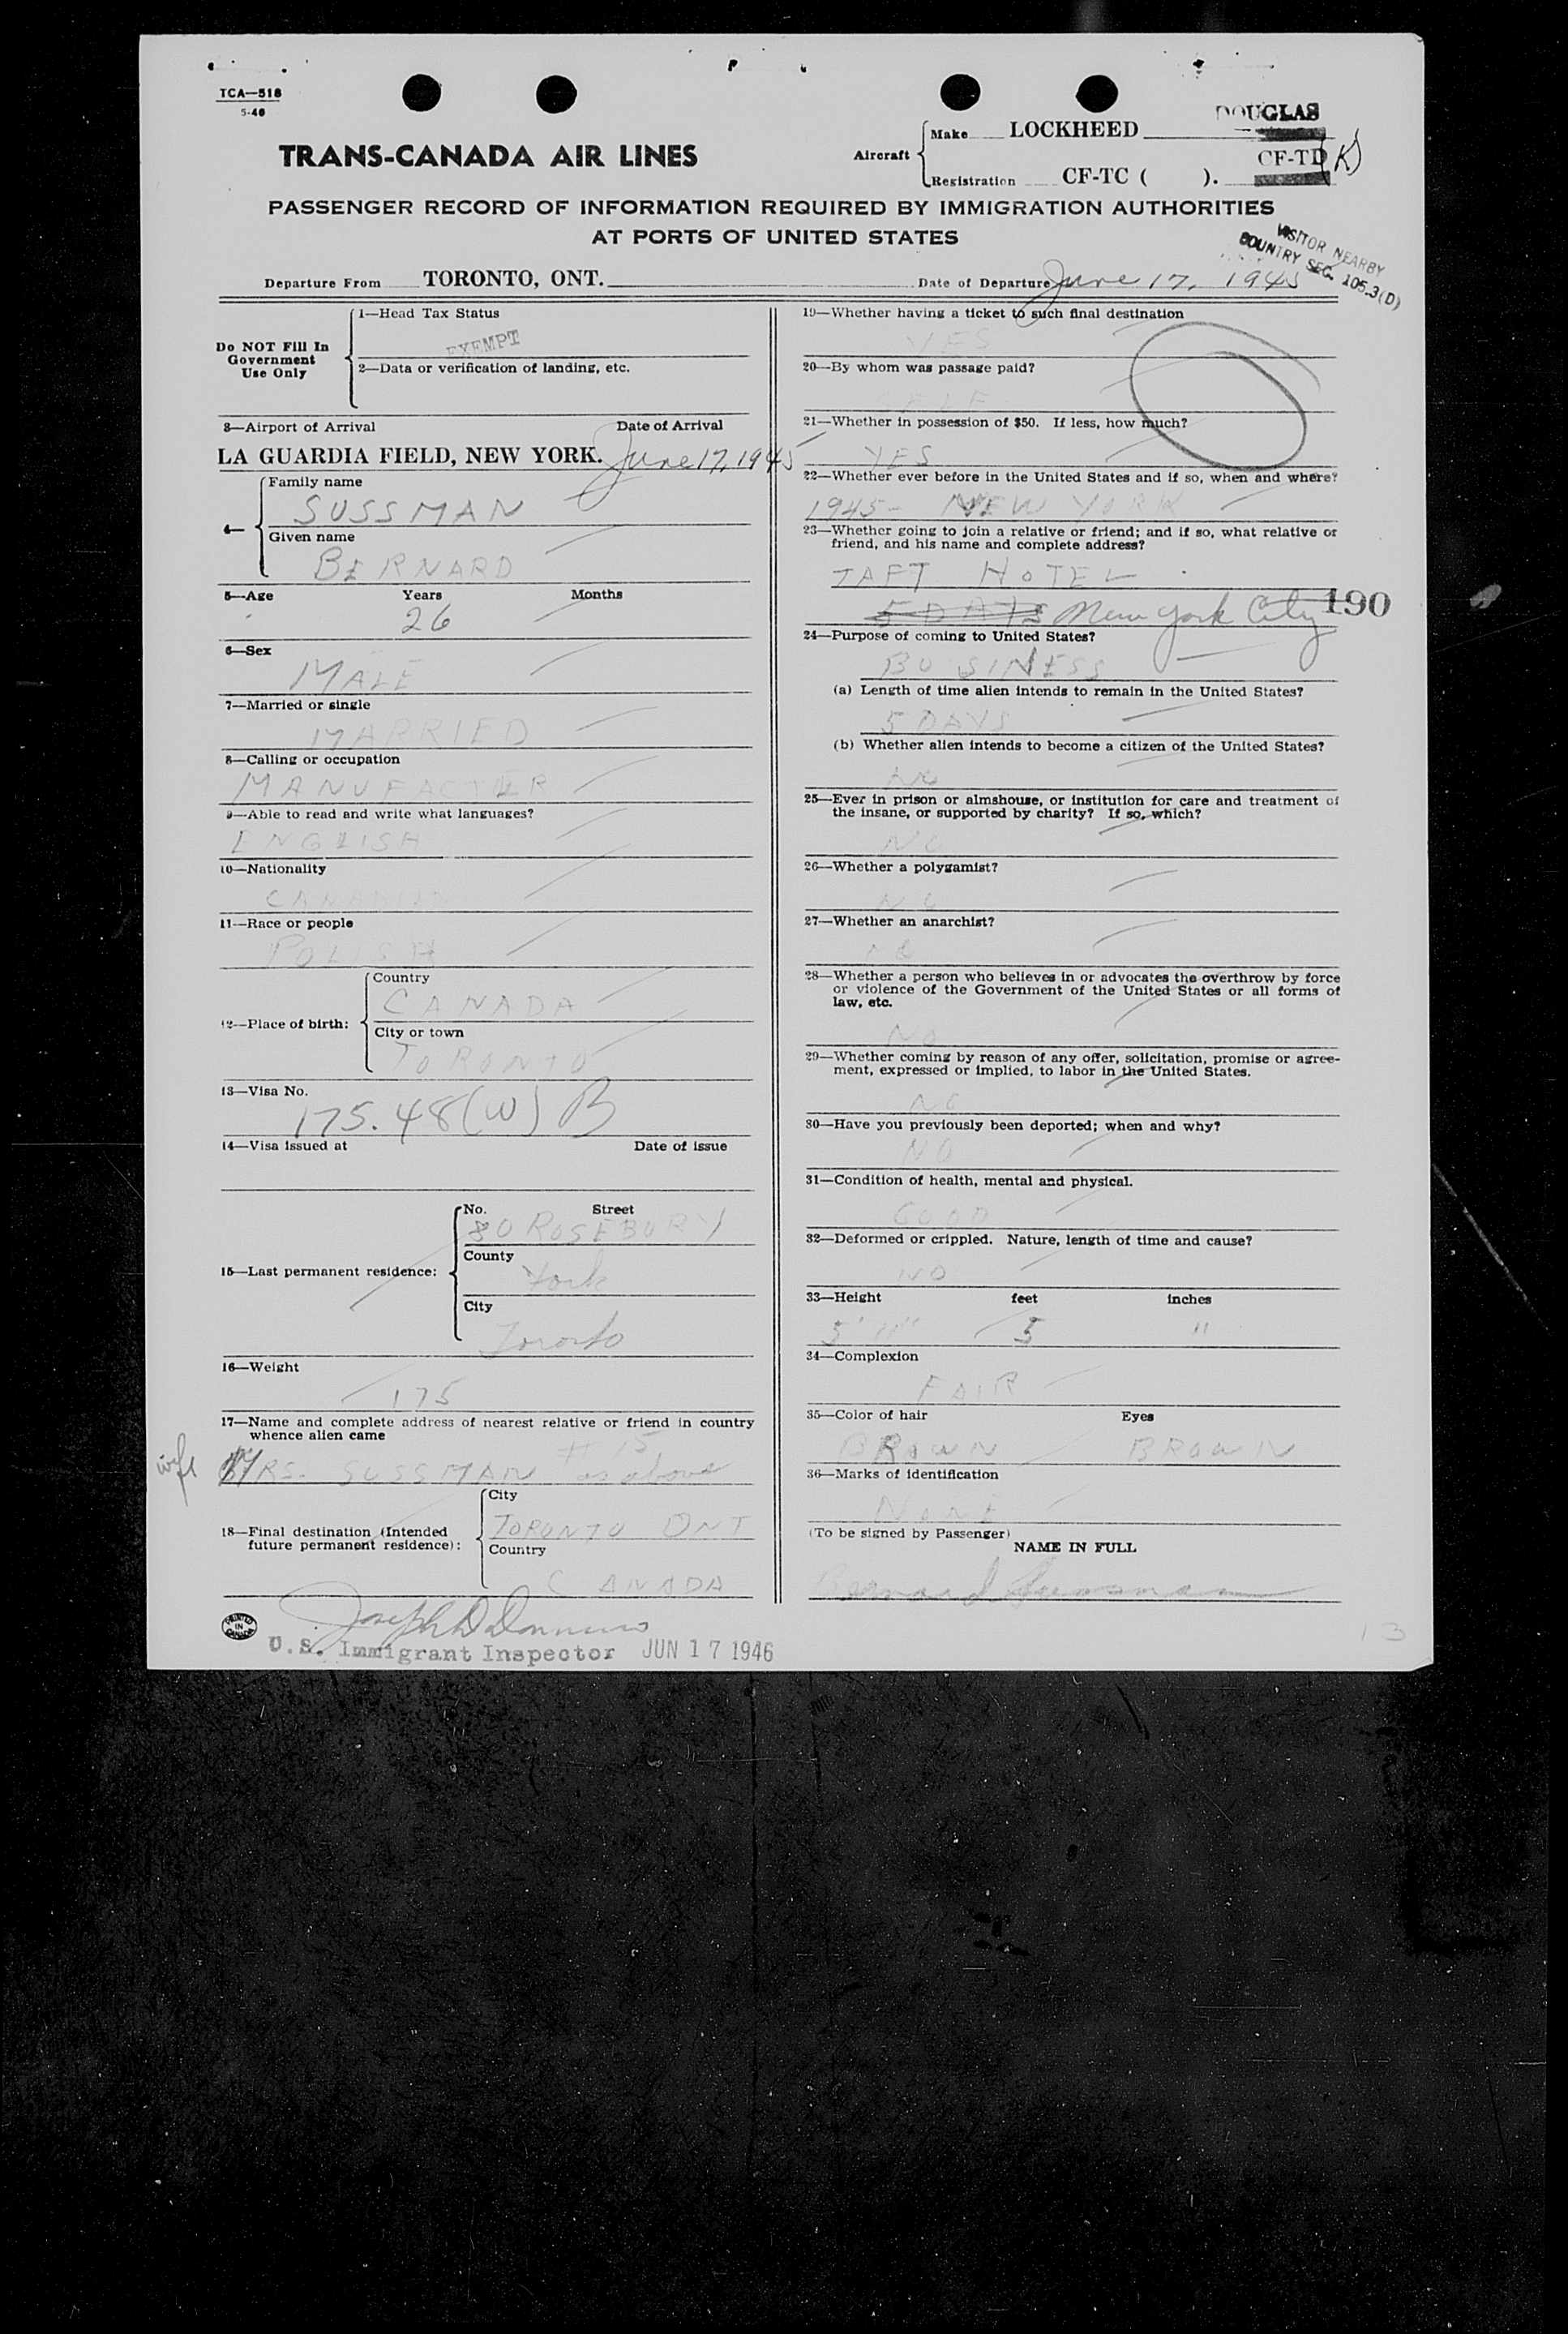 TCA—518
5-46
DOUGLAS
TRANS-CANADA AIR LINES
Aircraft
Make LOCKHEED
Registration CF-TC ( ).
CF-TD (K)
PASSENGER RECORD OF INFORMATION REQUIRED BY IMMIGRATION AUTHORITIES
AT PORTS OF UNITED STATES
VISITOR NEARBY
COUNTRY SEC. 105.3(D)
Departure From TORONTO, ONT. Date of Departure June 17, 1945
Do NOT Fill In
Government
Use Only
1—Head Tax Status
EXEMPT
2—Data or verification of landing, etc.
3—Airport of Arrival Date of Arrival
LA GUARDIA FIELD, NEW YORK. June 17, 1945
4—
Family name
SUSSMAN
Given name
BERNARD
5—Age Years Months
26
6—Sex
MALE
7—Married or single
MARRIED
8—Calling or occupation
MANUFACTUER
9—Able to read and write what languages?
ENGLISH
10—Nationality
CANADIAN
11—Race or people
POLISH
12—Place of birth:
Country
CANADA
City or town
TORONTO
13—Visa No.
175.48(W) B
14—Visa issued at Date of issue
15—Last permanent residence:
No. Street
80 ROSEBURY
County
York
City
Toronto
16—Weight
175
17—Name and complete address of nearest relative or friend in country
whence alien came
# 15
wife MRS. SUSSMAN as above
18—Final destination (Intended
future permanent residence):
City
TORONTO ONT
Country
CANADA
19—Whether having a ticket to such final destination
YES
20—By whom was passage paid?
SELF
21—Whether in possession of $50. If less, how much?
YES
22—Whether ever before in the United States and if so, when and where?
1945- NEW YORK
23—Whether going to join a relative or friend; and if so, what relative or
friend, and his name and complete address?
TAFT HOTEL
5 DAYS New York City 190
24—Purpose of coming to United States?
BUSINESS
(a) Length of time alien intends to remain in the United States?
5 DAYS
(b) Whether alien intends to become a citizen of the United States?
NO
25—Ever in prison or almshouse, or institution for care and treatment of
the insane, or supported by charity? If so, which?
NO
26—Whether a polygamist?
NO
27—Whether an anarchist?
NO
28—Whether a person who believes in or advocates the overthrow by force
or violence of the Government of the United States or all forms of
law, etc.
NO
29—Whether coming by reason of any offer, solicitation, promise or agree-
ment, expressed or implied, to labor in the United States.
NO
30—Have you previously been deported; when and why?
NO
31—Condition of health, mental and physical.
GOOD
32—Deformed or crippled. Nature, length of time and cause?
NO
33—Height feet inches
5' 11" 5 11
34—Complexion
FAIR
35—Color of hair Eyes
BROWN BROWN
36—Marks of identification
NONE
(To be signed by Passenger)
NAME IN FULL
Bernard Sussman
PRINTED IN CANADA
Joseph D
U.S. Immigrant Inspector JUN 17 1946
13